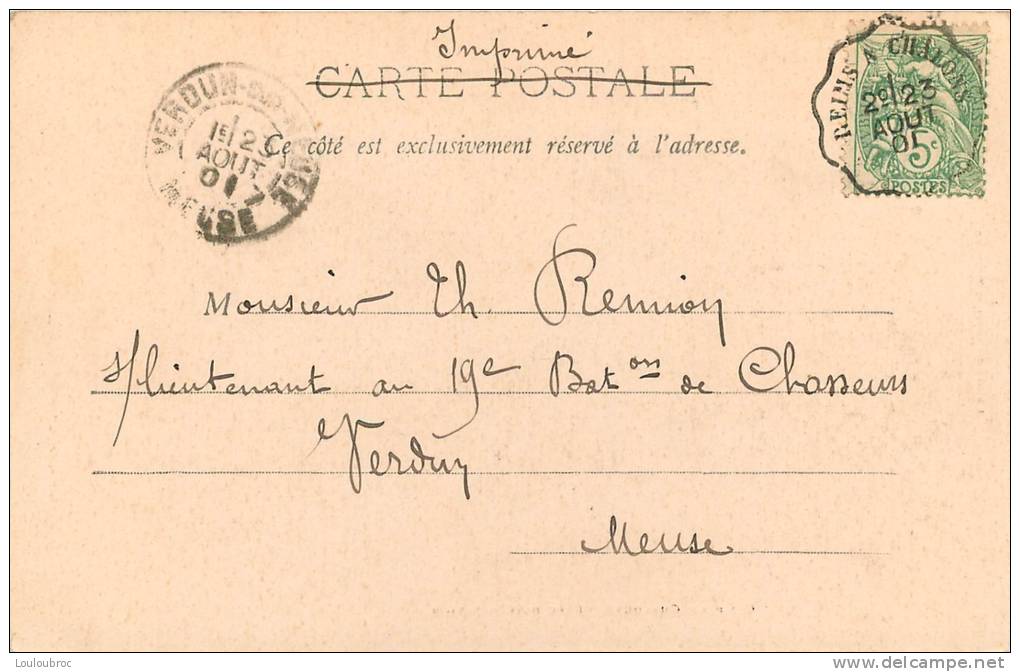 Imprimé
CARTE POSTALE
Ce côté est exclusivement réservé à l'adresse.
VERDUN-
1E/23
AOUT
01
MEUSE
REIMS A CHALONS
2º/23
AOUT
01
5c
POSTES
Monsieur Th. Remion
s/lieutenant au 19e Baton de Chasseurs
Verdun
Meuse
Louloubroc
www.delcampe.net